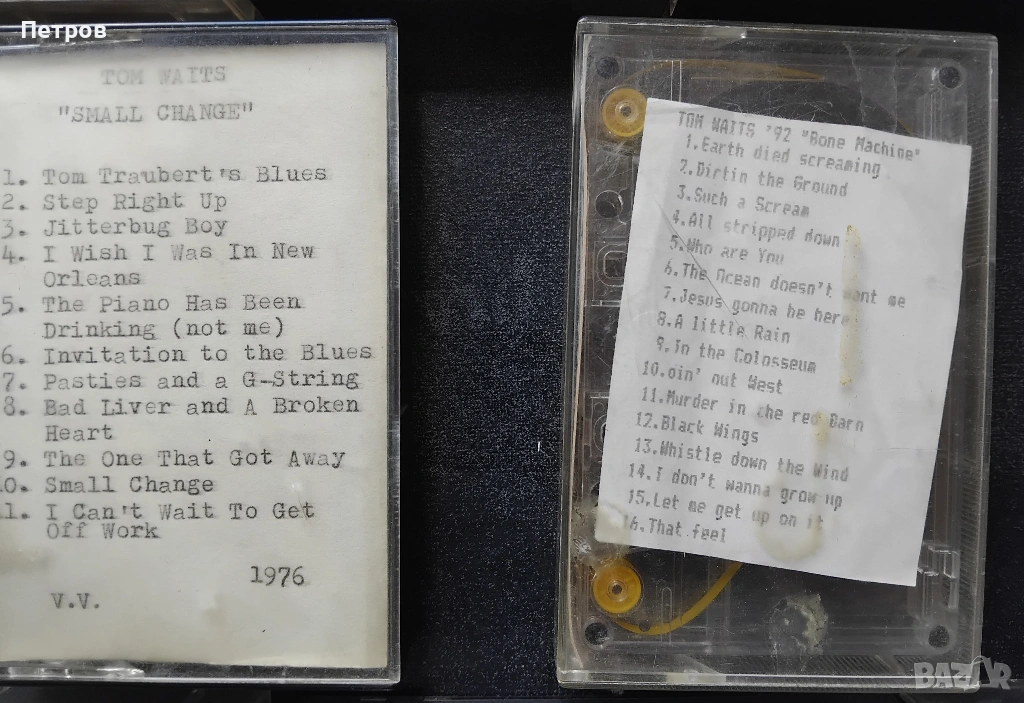 Петров
TOM WAITS
"SMALL CHANGE"
1. Tom Traubert's Blues
2. Step Right Up
3. Jitterbug Boy
4. I Wish I Was In New
Orleans
5. The Piano Has Been
Drinking (not me)
6. Invitation to the Blues
7. Pasties and a G-String
8. Bad Liver and A Broken
Heart
9. The One That Got Away
10. Small Change
11. I Can't Wait To Get
Off Work
1976
V.V.
TOM WAITS '92 "Bone Machine"
1.Earth died screaming
2.Dirtin the Ground
3.Such a Scream
4.All stripped down
5.Who are You
6.The Ocean doesn't want me
7.Jesus gonna be here
8.A little Rain
9.In the Colosseum
10.oin' out West
11.Murder in the red Barn
12.Black Wings
13.Whistle down the Wind
14.I don't wanna grow up
15.Let me get up on it
16.That feel
BAZAR